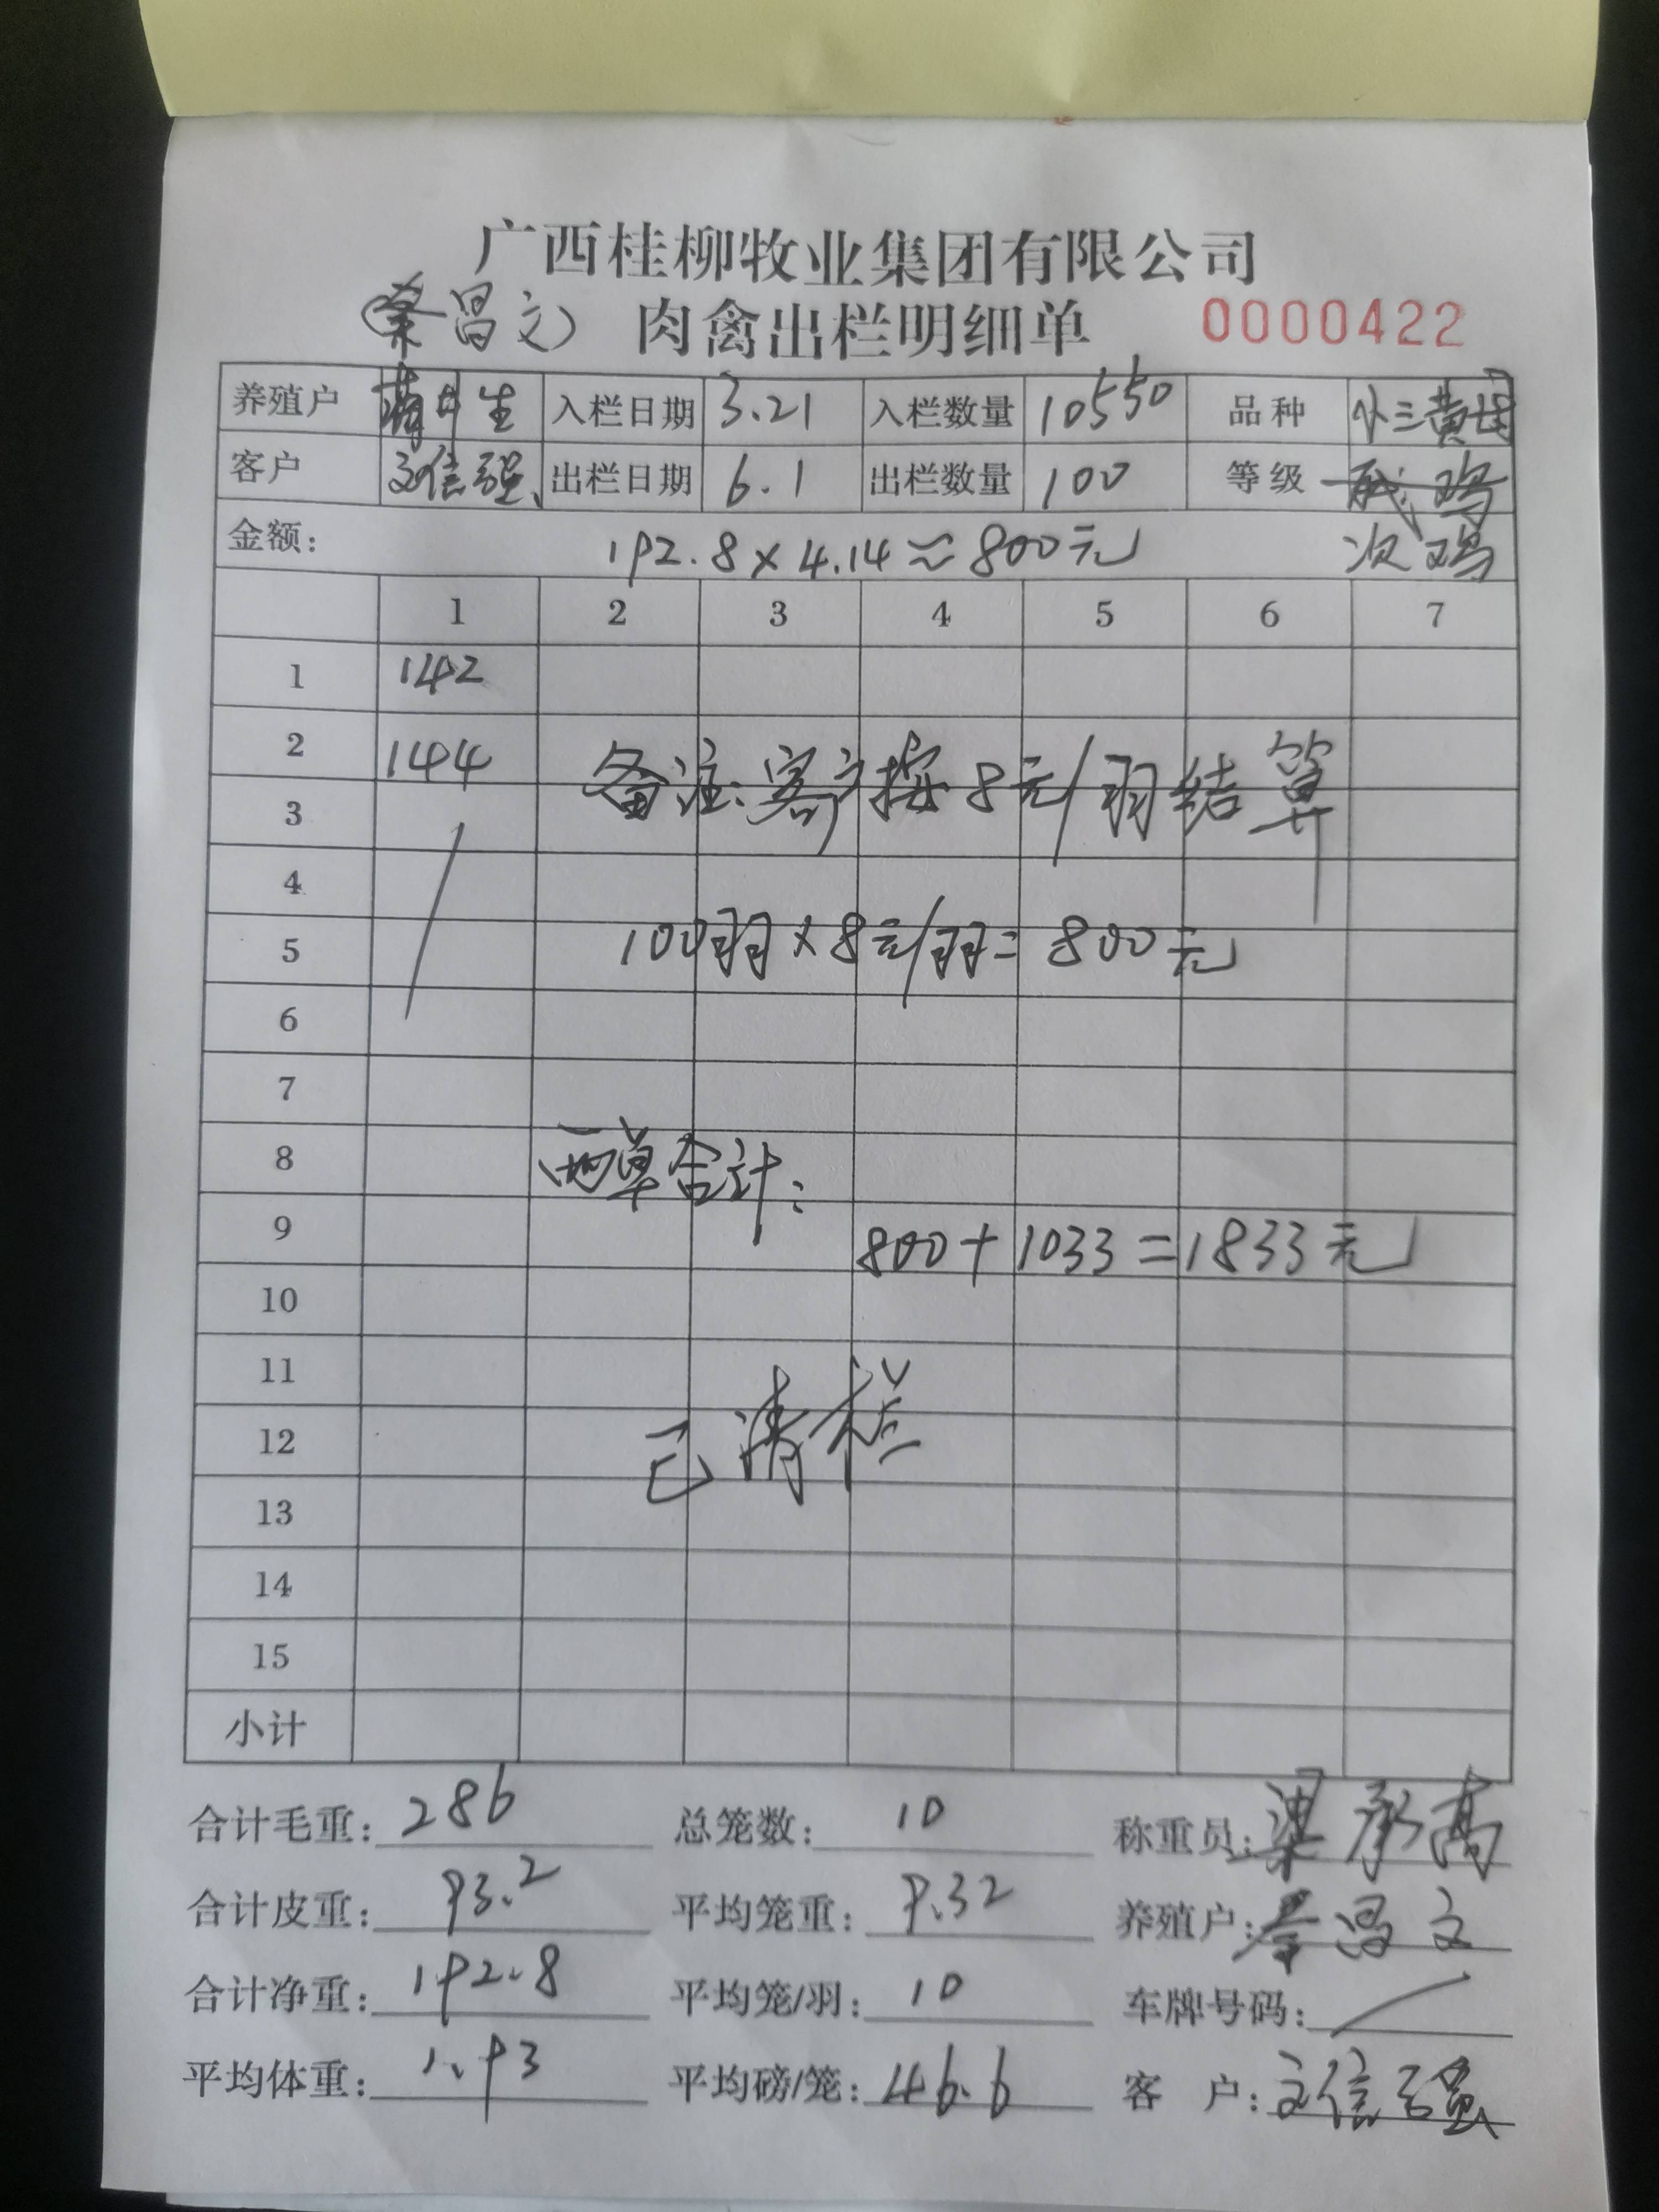 广西桂柳牧业集团有限公司
肉禽出栏明细单 0000422
养殖户 入栏日期 3.21 入栏数量 10550 品种 小三黄
客户 文信强 出栏日期 6.1 出栏数量 100 等级 残鸡
金额: 192.8×4.14≈800元 次鸡
1 2 3 4 5 6 7
1 142
2 144 备注:客户按8元/羽结算
3
4
5 100羽×8元/羽=800元
6
7
8 两单合计:
9 800+1033=1833元
10
11
12 已清栏
13
14
15
小计
合计毛重: 286 总笼数: 10 称重员: 梁承高
合计皮重: 93.2 平均笼重: 9.32 养殖户: 昌文
合计净重: 192.8 平均笼/羽: 10 车牌号码: /
平均体重: 1.93 平均磅/笼: 46.6 客户: 文信强